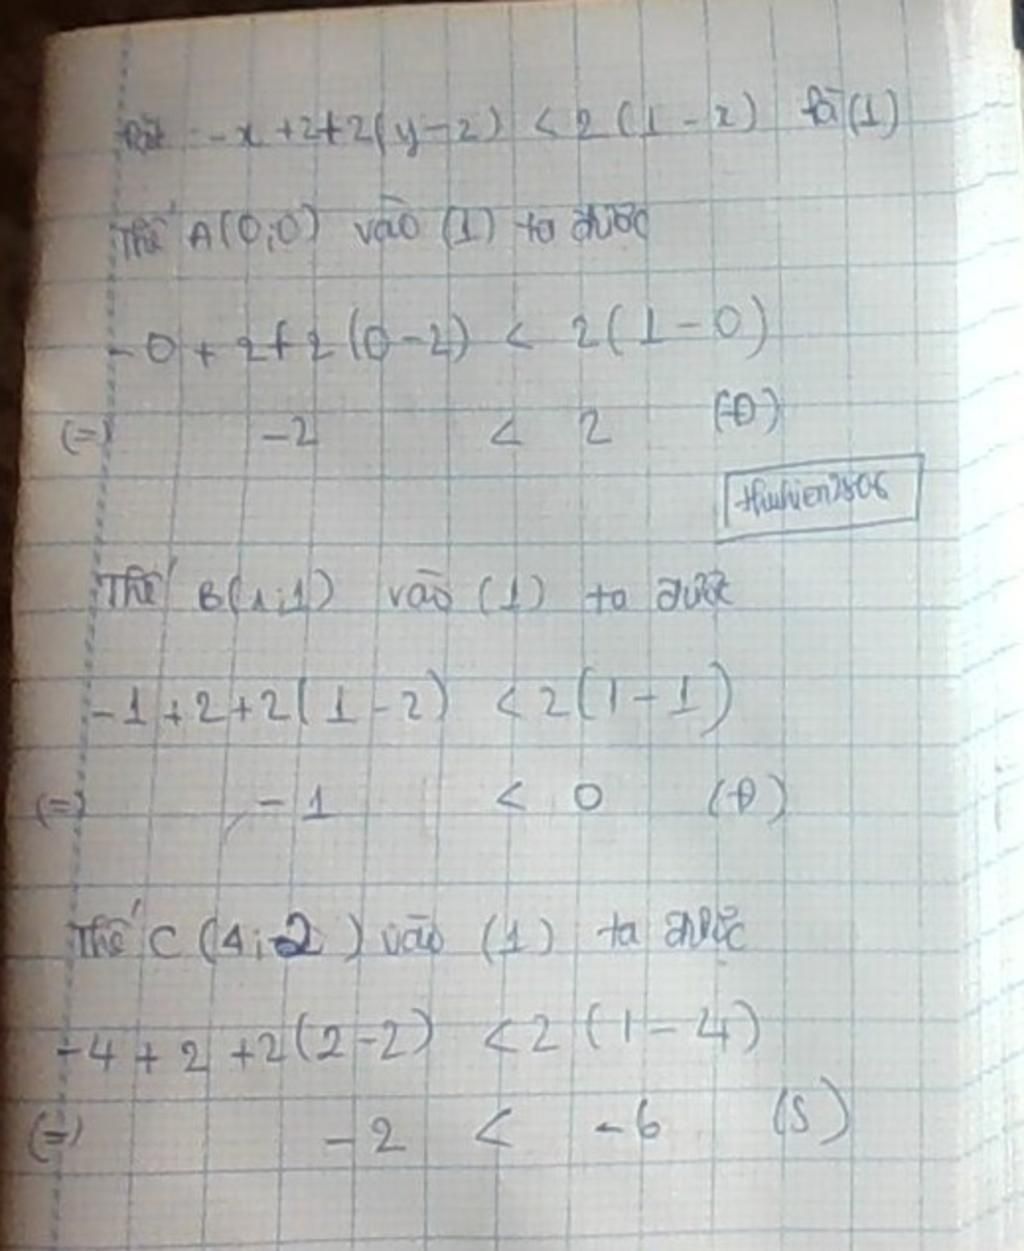 Đặt -x+2+2(y-2) < 2(1-x) là (1)
Thế A(0;0) vào (1) ta được
-0+2+2(0-2) < 2(1-0)
(=) -2 < 2 (Đ)
Thuhien2806
Thế B(1;1) vào (1) ta được
-1+2+2(1-2) < 2(1-1)
(=) -1 < 0 (Đ)
Thế C (4;2) vào (1) ta được
-4+2+2(2-2) < 2(1-4)
(=) -2 < -6 (S)